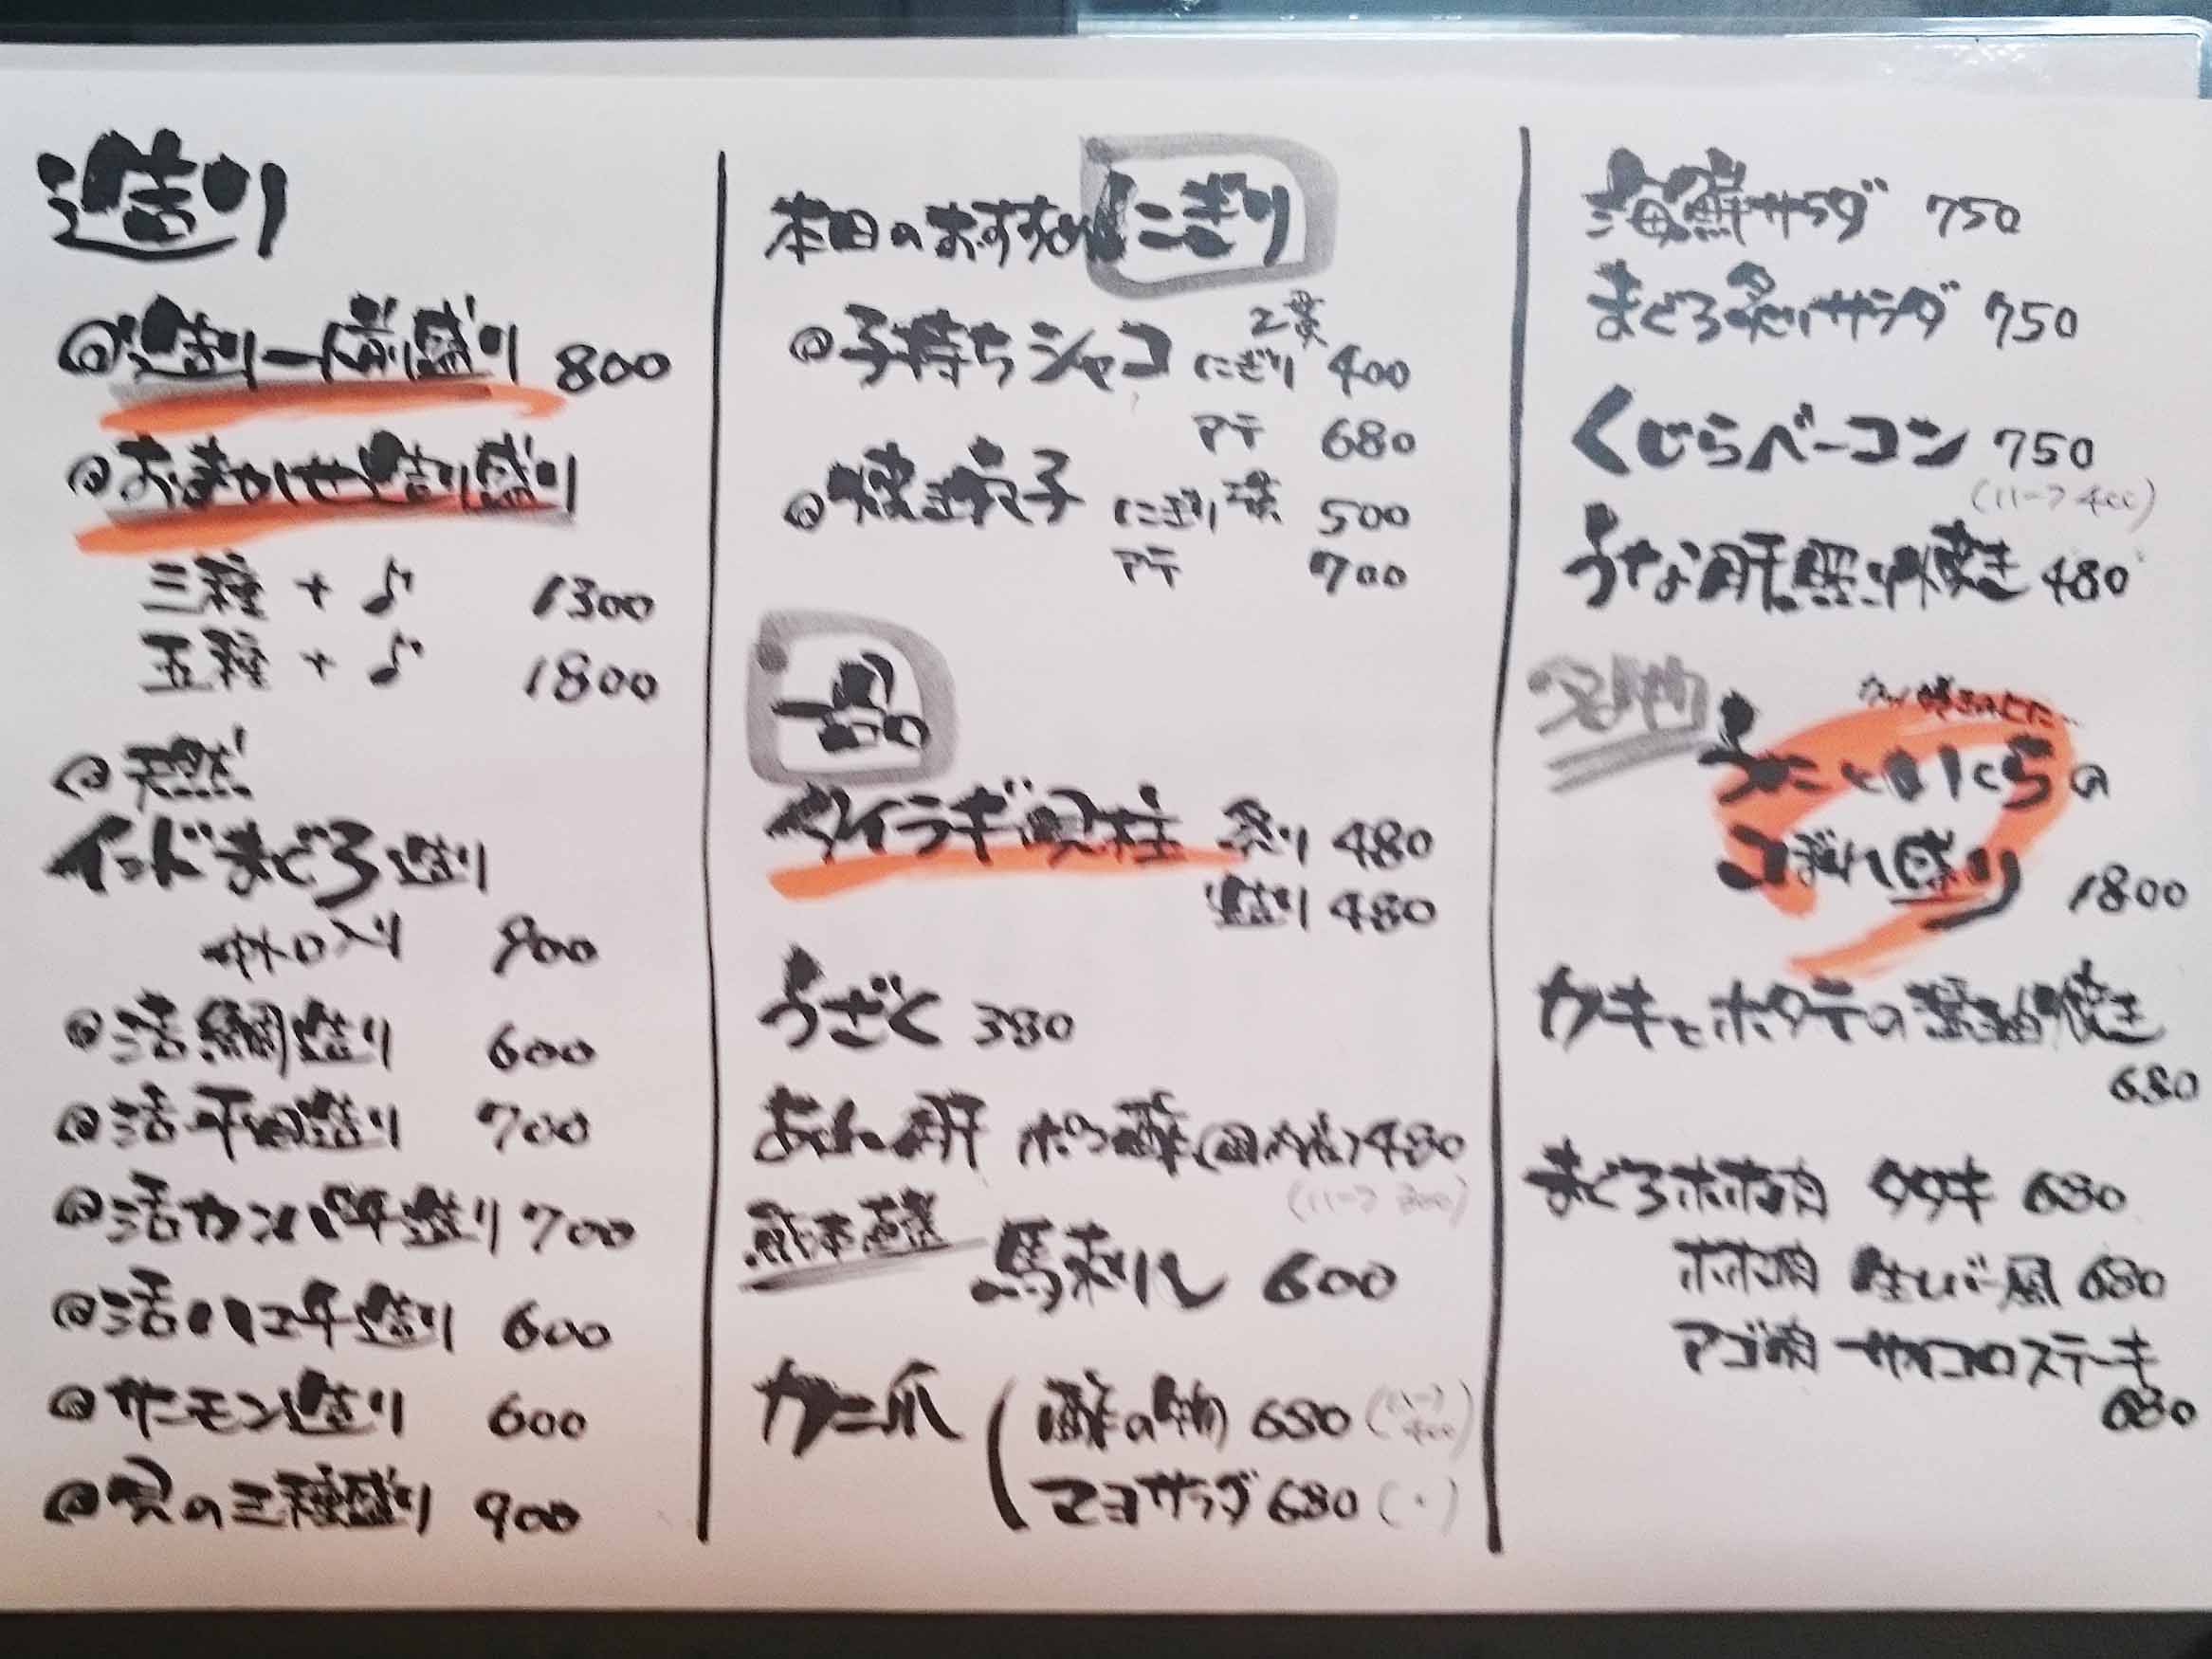 造り
造り一人前盛り 800
おまかせ造り盛り
三種 + ♪ 1300
五種 + ♪ 1800
天然
インドまぐろ造り
中トロ入り 900
活鯛造り 600
活平目造り 700
活カンパチ造り 700
活ハマチ造り 600
サーモン造り 600
貝の三種盛り 900
本日のおすすめにぎり
子持ちシャコ にぎり 2貫 400
アテ 680
焼き穴子 にぎり 二貫 500
アテ 700
一品
タイラギ貝柱 炙り 480
造り 480
うざく 380
あん肝 ポン酢 (国内産) 480
(ハーフ 300)
熊本直送 馬刺し 600
カニ爪 酢の物 680 (ハーフ 400)
マヨサラダ 680 (〃)
海鮮サラダ 750
まぐろ炙りサラダ 750
くじらベーコン 750
(ハーフ 400)
うなぎ肝照り焼き 480
名物
うにといくらの
こぼれ盛り 1800
カキとホタテの醤油焼き
680
まぐろホホ肉 タタキ 680
ホホ肉 生レバー風 680
アゴ肉 サイコロステーキ
680